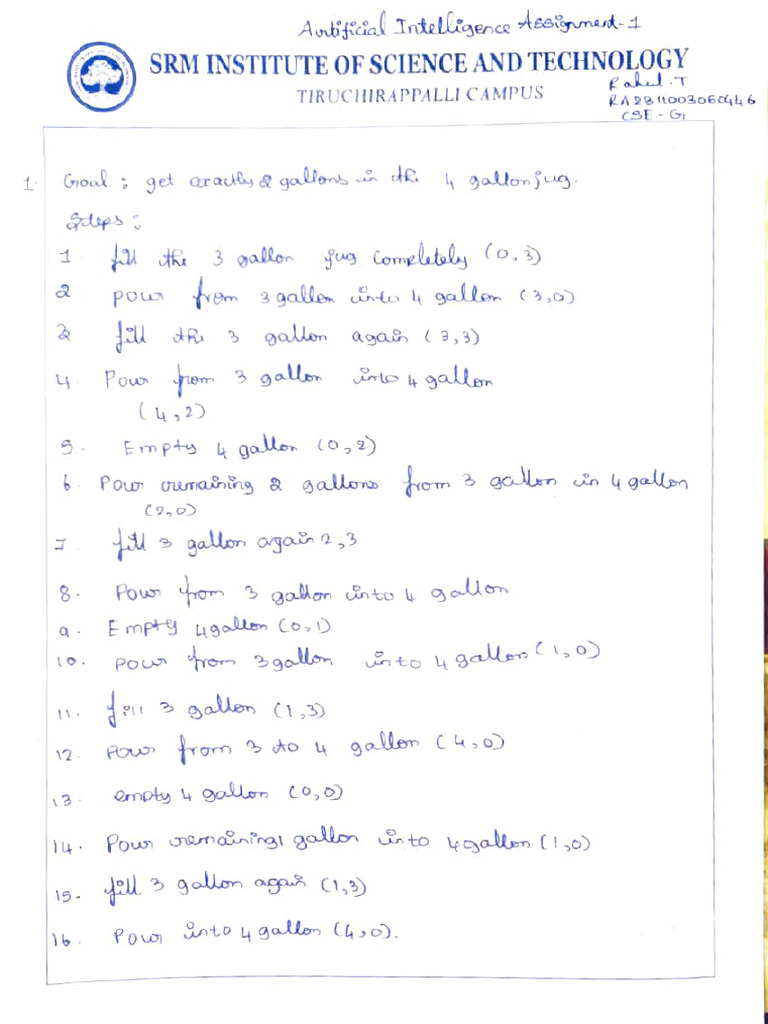 Artificial Intelligence Assignment-1
SRM INSTITUTE OF SCIENCE AND TECHNOLOGY
TIRUCHIRAPPALLI CAMPUS
Rahul.T
RA2311003060446
CSE-G
1. Goal: get exactly 2 gallons in the 4 gallon jug.
Steps:
1 fill the 3 gallon jug completely (0,3)
2 pour from 3 gallon into 4 gallon (3,0)
3 fill the 3 gallon again (3,3)
4. Pour from 3 gallon into 4 gallon
(4,2)
5. Empty 4 gallon (0,2)
6. Pour remaining 2 gallons from 3 gallon in 4 gallon
(2,0)
7. fill 3 gallon again 2,3
8. Pour from 3 gallon into 4 gallon
9. Empty 4 gallon (0,1)
10. pour from 3 gallon into 4 gallon (1,0)
11. fill 3 gallon (1,3)
12. Pour from 3 to 4 gallon (4,0)
13. empty 4 gallon (0,0)
14. Pour remaining 1 gallon into 4 gallon (1,0)
15. fill 3 gallon again (1,3)
16. Pour into 4 gallon (4,0).